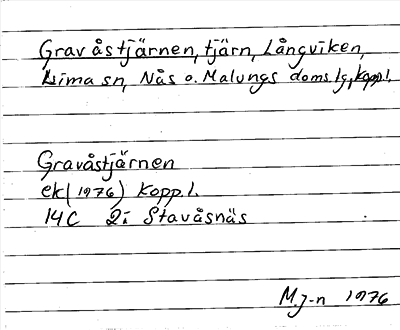 Gravåstjärnen, tjärn, Långviken,
Lima sn, Nås o. Malungs doms.lg, Kopp.l.
Gravåstjärnen
ek (1976) Kopp.l.
14C 2i Stavåsnäs
M.J-n 1976